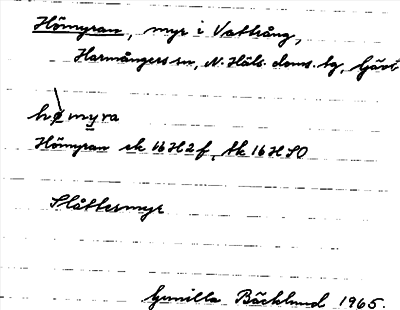 Hömyran, myr i Vattrång,
Harmångers sn, N. Häls. doms. bg, Gävl
hømyra
Hömyran ek 16H2f, tk 16H SO
Slåttermyr
Gunilla Bäcklund 1965.